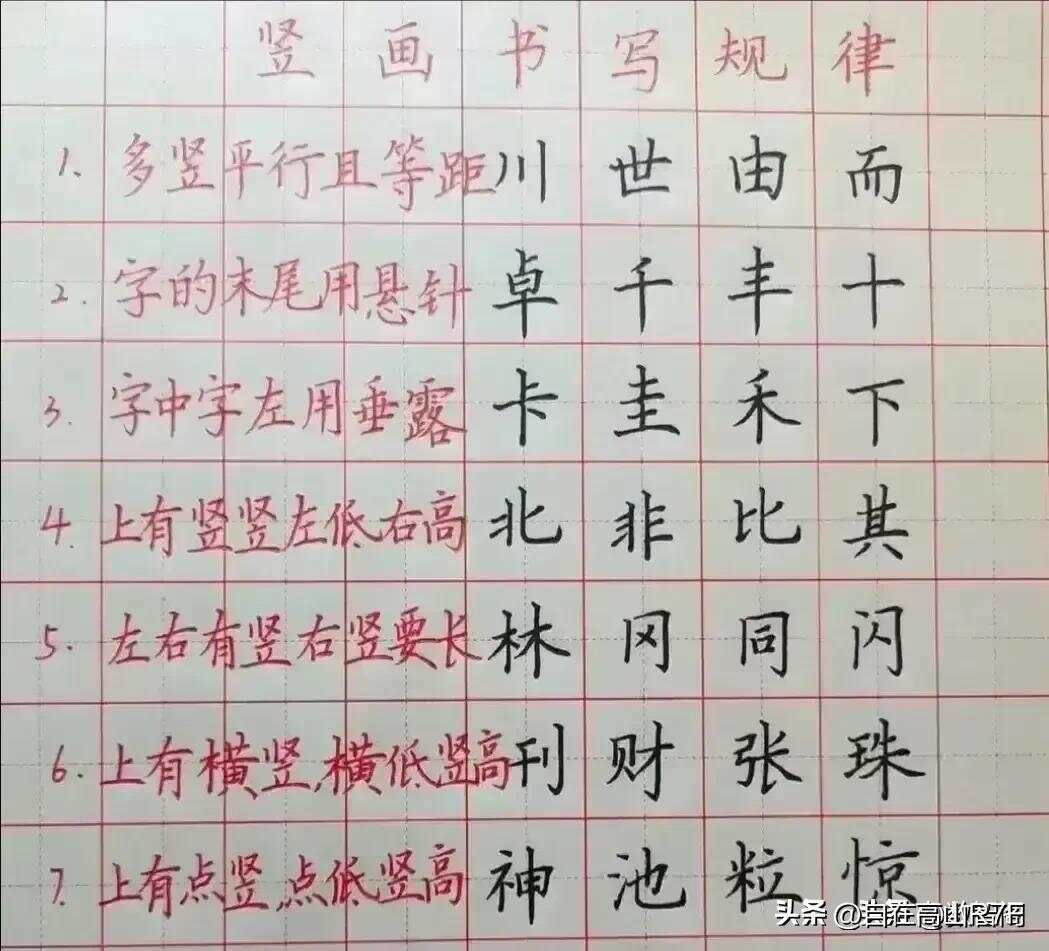 竖画书写规律
1. 多竖平行且等距 川 世 由 而
2. 字的末尾用悬针 卓 千 丰 十
3. 字中字左用垂露 卡 圭 禾 下
4. 上有竖竖左低右高 北 非 比 其
5. 左右有竖右竖要长 林 冈 同 闪
6. 上有横竖,横低竖高 刊 财 张 珠
7. 上有点竖,点低竖高 神 池 粒 惊
头条 @